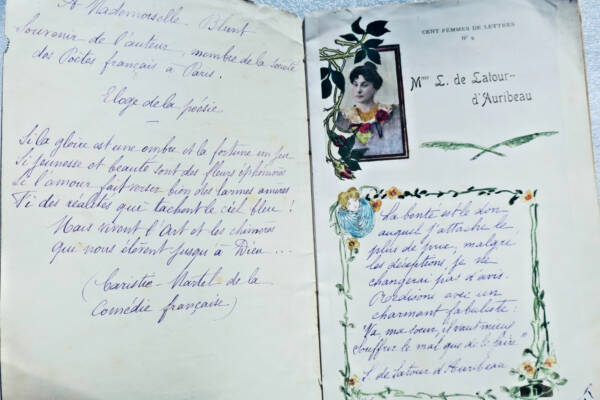 A Mademoiselle Blunt
Souvenir de l'auteur, membre de la Société
des Poètes français à Paris.
Eloge de la poésie
Si la gloire est une ombre et la fortune un jeu
Si jeunesse et beauté sont des fleurs éphémères
Si l'amour fait verser bien des larmes amères
Fi des réalités qui tachent le ciel bleu !
Mais vivent l'Art et les chimères
qui nous élèvent jusqu'à Dieu ...
(Caristie-Martel de la
Comédie française)
CENT FEMMES DE LETTRES
Mme L. de Latour-
d'Auribeau
La bonté est le don
auquel j'attache le
plus de prix, malgré
les déceptions je ne
changerai pas d'avis.
Redisons avec un
charmant fabuliste :
"Va, ma soeur, il vaut mieux
souffrir le mal que de le faire."
L. de Latour d'Auribeau